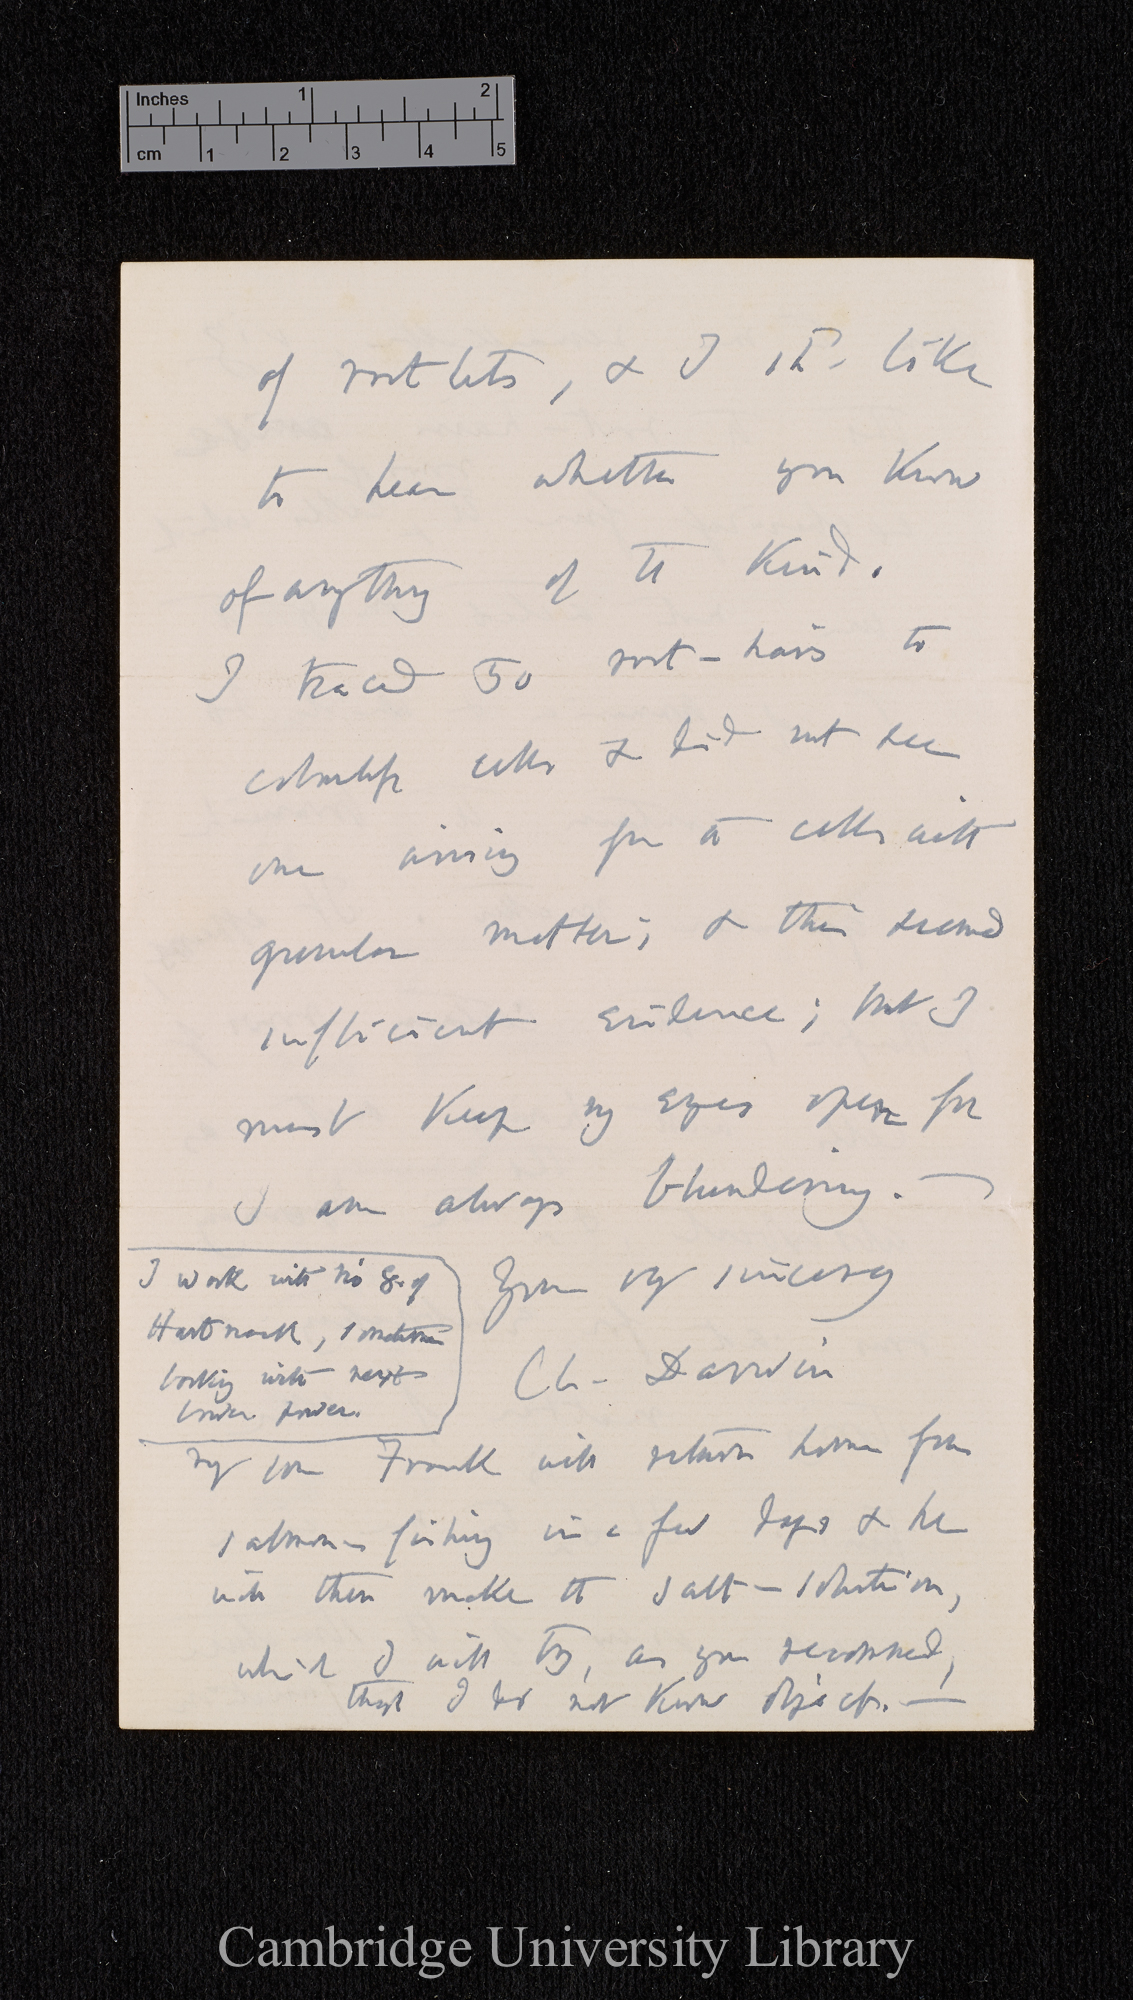 Inches 1 2
cm 1 2 3 4 5
of rootlets, & I shd. like
to hear whether you know
of anything of the kind.
I traced 50 root-hairs to
colourless cells & did not see
one arising from the cells with
granular matter; & this seemed
sufficient evidence; but I
must keep my eyes open for
I am always blundering.—
Yours very sincerely
Ch. Darwin
I work with No 8. of
Hartnack, sometimes
looking with next
lower power.
My son Frank will return home from
salmon-fishing in a few days & he
will then make the salt-solution,
which I will try, as you recommend,
tho I do not know objects.—
Cambridge University Library